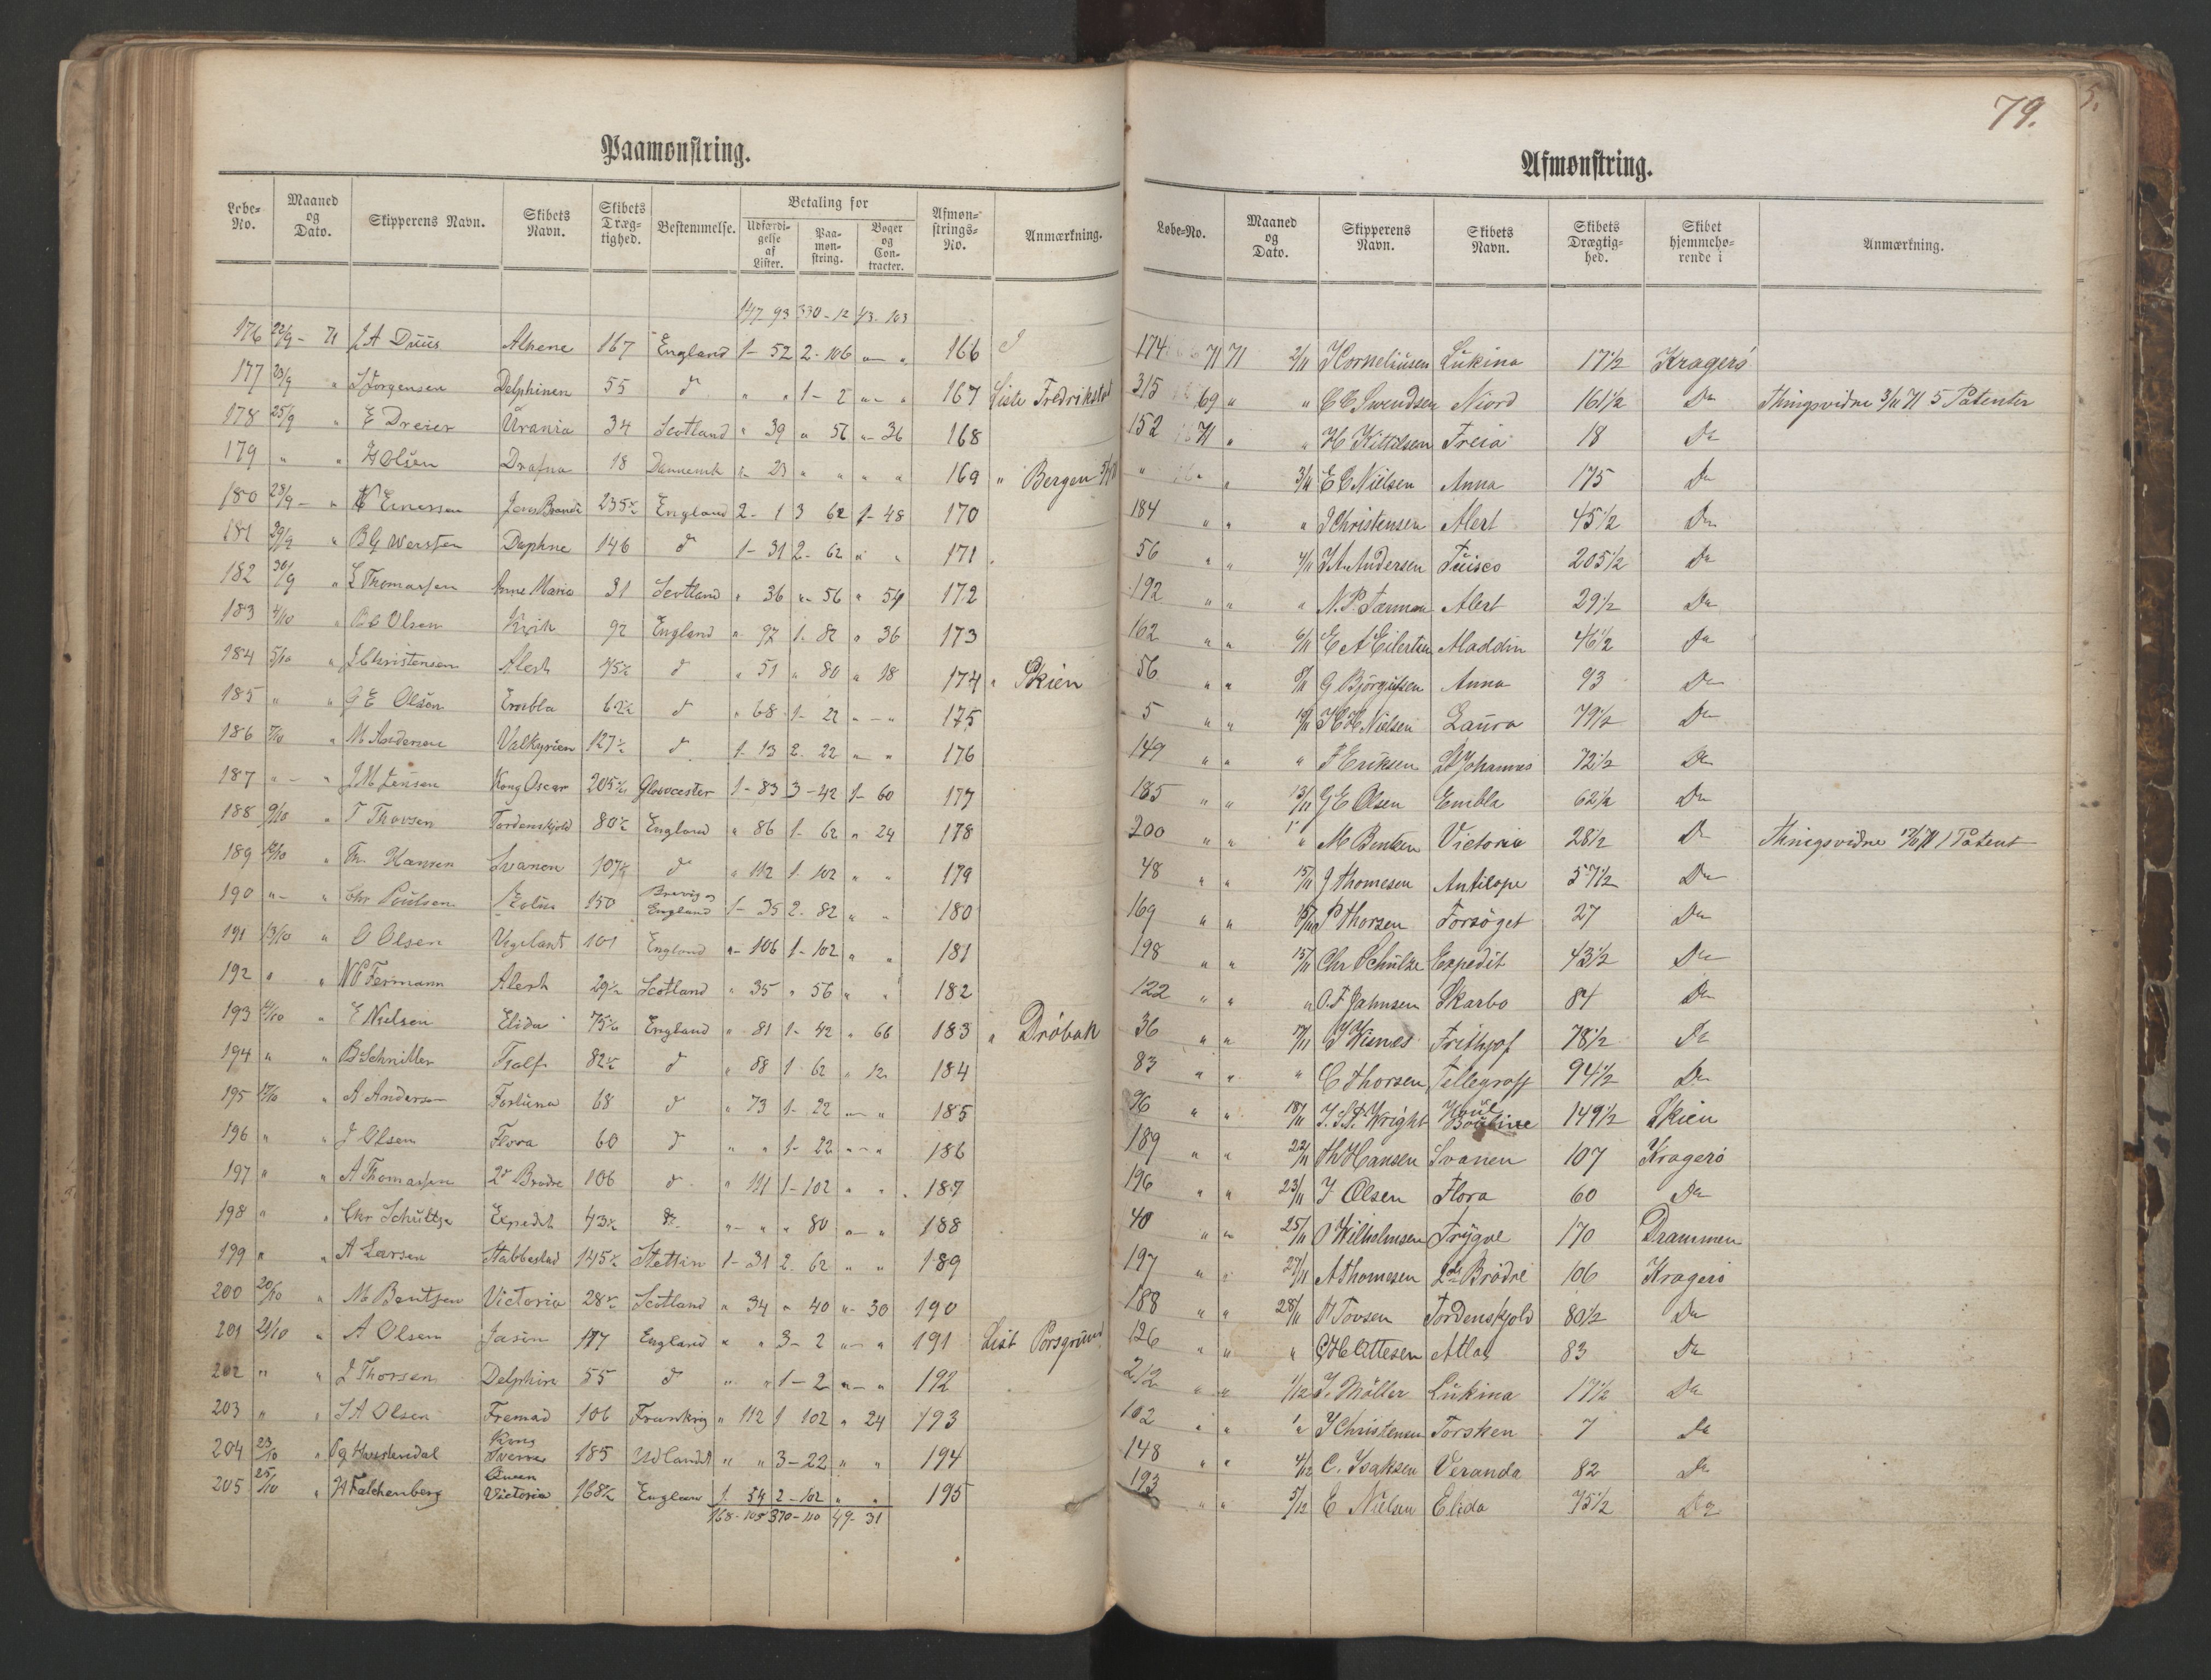 79.
Paamønstring.
Løbe-No. | Maaned og Dato. | Skipperens Navn. | Skibets Navn. | Skibets Dræg-tighed. | Bestemmelse. | Betaling for | Udfærdi-gelse af Lister. | Paa-møn-string. | Bøger og Con-tracter. | Afmøn-strings-No. | Anmærkning.
147-93 330-12 43-103
176 22/9 - 71 J A Duus 167 England 1-52 2-106 " - " 166
177 23/9 " Jörgensen Delphinen 55 d " " 1-2 " - " 167 Liste Fredrikstad
178 25/9 " E Dreier Urania 34 Scotland " 39 " 56 " - 36 168
179 " " H Olsen Drafna 18 Danmark " 23 " " " " 169 " Bergen
180 28/9 - " Jens Brandi 235½ England 2-1 3 62 1-48 170
181 29/9 " B G Wersten Daphne 146 d 1-31 2-62 " " 171
182 30/9 " L Thomassen Anne Maria 31 Scotland " 36 " 56 " 54 172
183 4/10 " Olsen 92 England " 97 1-82 " 36 173
184 5/10 " J Christensen Alert 45½ d " 51 " 80 " 18 174 " Skien
185 " " G E Olsen Embla 62½ d " 68 1-22 " - " 175
186 7/10 " M Andersen Valkyrien 127½ d 1-13 2-22 " - " 176
187 " - " J M Jensen Kong Oscar 205½ Gloucester 1-83 3-42 1-60 177
188 9/10 " T Thorsen Tordenskjold 80½ England " 86 1-62 " 24 178
189 " Th. Hansen Svanen 107 d " 112 1-102 " " 179
190 " - " Chr Poulsen Eolus 150 Brevig og England 1-35 2-82 " " 180
191 13/10 " O Olsen Vigilant 101 England " - 106 1-102 " " 181
192 " " N P Termann Alert 29½ Scotland " 35 " 56 " " 182
193 " E Nielsen Elida 75½ England " 81 1-42 " 66 183 " Dröbak
194 " " B Schnitler Tjalf 82½ d " 88 1-62 " 12 184
195 17/10 " A Anderson Fortuna 68 d " 73 1-22 " - " 185
196 " " J Olsen Flora 60 d " " 1-22 " - " 186
197 " " A Thomassen 2de Brødre 106 d " 111 1-102 " " 187
198 " " Chr Schultze Expedit 43½ do " - " " 80 " - " 188
199 " " A Larsen Stabbestad 145½ Stettin 1-31 2-62 " " 189
200 20/10 " M Bentsen Victoria 28½ Scotland " 34 " 40 " - 30 190
201 21/10 " A Olsen Jasin 177 England " " 3-2 " - " 191 List Porsgrund
202 " " J Thorsen Delphin 55 d " " 1-2 " - " 192
203 " " S A Olsen Fremad 106 Frankrig " 112 1 102 " 24 193
204 23/10 " Kong Sverre 185 Udlandet " " 3-22 " " 194
205 25/10 " H Falchenberg Queen Victoria 168½ England 1 54 2-102 " " 195
168-105 370-110 49-31
Afmønstring.
Løbe-No. | Maaned og Dato. | Skipperens Navn. | Skibets Navn. | Skibets Drægtig-hed. | Skibet hjemmehø-rende i | Anmærkning.
174 71 71 2/11 Korneliusen Lukina 17½ Kragerö
315 69 " " C C Swendsen Niord 161½ Do Thingsvidne 3/11 71 5 Patenter
152 71 " " H Kittilsen Freia 18 Do
" " 3/11 E C Nielsen Anna 175 Do
184 " " " J Christensen Alert 45½ Do
56 " " 4/11 J A Andersen Tuisco 205½ Do
192 " " " N. P. Tarman Alert 29½ Do
162 " " 6/11 E A Eilertsen Aladdin 46½ Do
56 " " 8/11 G Björgulsen Anna 93 Do
5 " " 10/11 H C Nielsen Laura 79½ Do
149 " " " F Eriksen St Johannes 72½ Do
185 " " 13/11 G E Olsen Embla 62½ Do
200 " " " M Bentsen Victoria 28½ Do Thingsvidne 1 Patent
48 " " 15/11 J Thomesen Antilope 57½ Do
169 " " P Thorsen Forsöget 27 Do
198 " " 15/11 Chr Schulze Expedit 43½ Do
122 " " " O. F Jahnsen Skarbo 84 Do
36 " " J Wisnes Frithjof 78½ Do
83 " " " C Thorsen Tellegraff 94½ Do
96 " " 18/11 J. S. Wright 149½ Skien
189 " " 22/11 Th Hansen Svanen 107 Kragerö
196 " " 23/11 J Olsen Flora 60 Do
40 " " 25/11 O Wilhelmsen Trygve 170 Drammen
197 " " 27/11 A Thomesen 2de Brödre 106 Kragerö
188 " " 28/11 Tovsen Tordenskjold 80½ Do
126 " " " Ottesen Atlas 83 Do
212 " " 1/12 J. Möller Lukina 17½ Do
102 " " " J Christensen Torsken 7 Do
148 " " 4/12 C. Isaksen Veranda 82 Do
193 " " 5/12 E Nielsen Elida 75½ Do